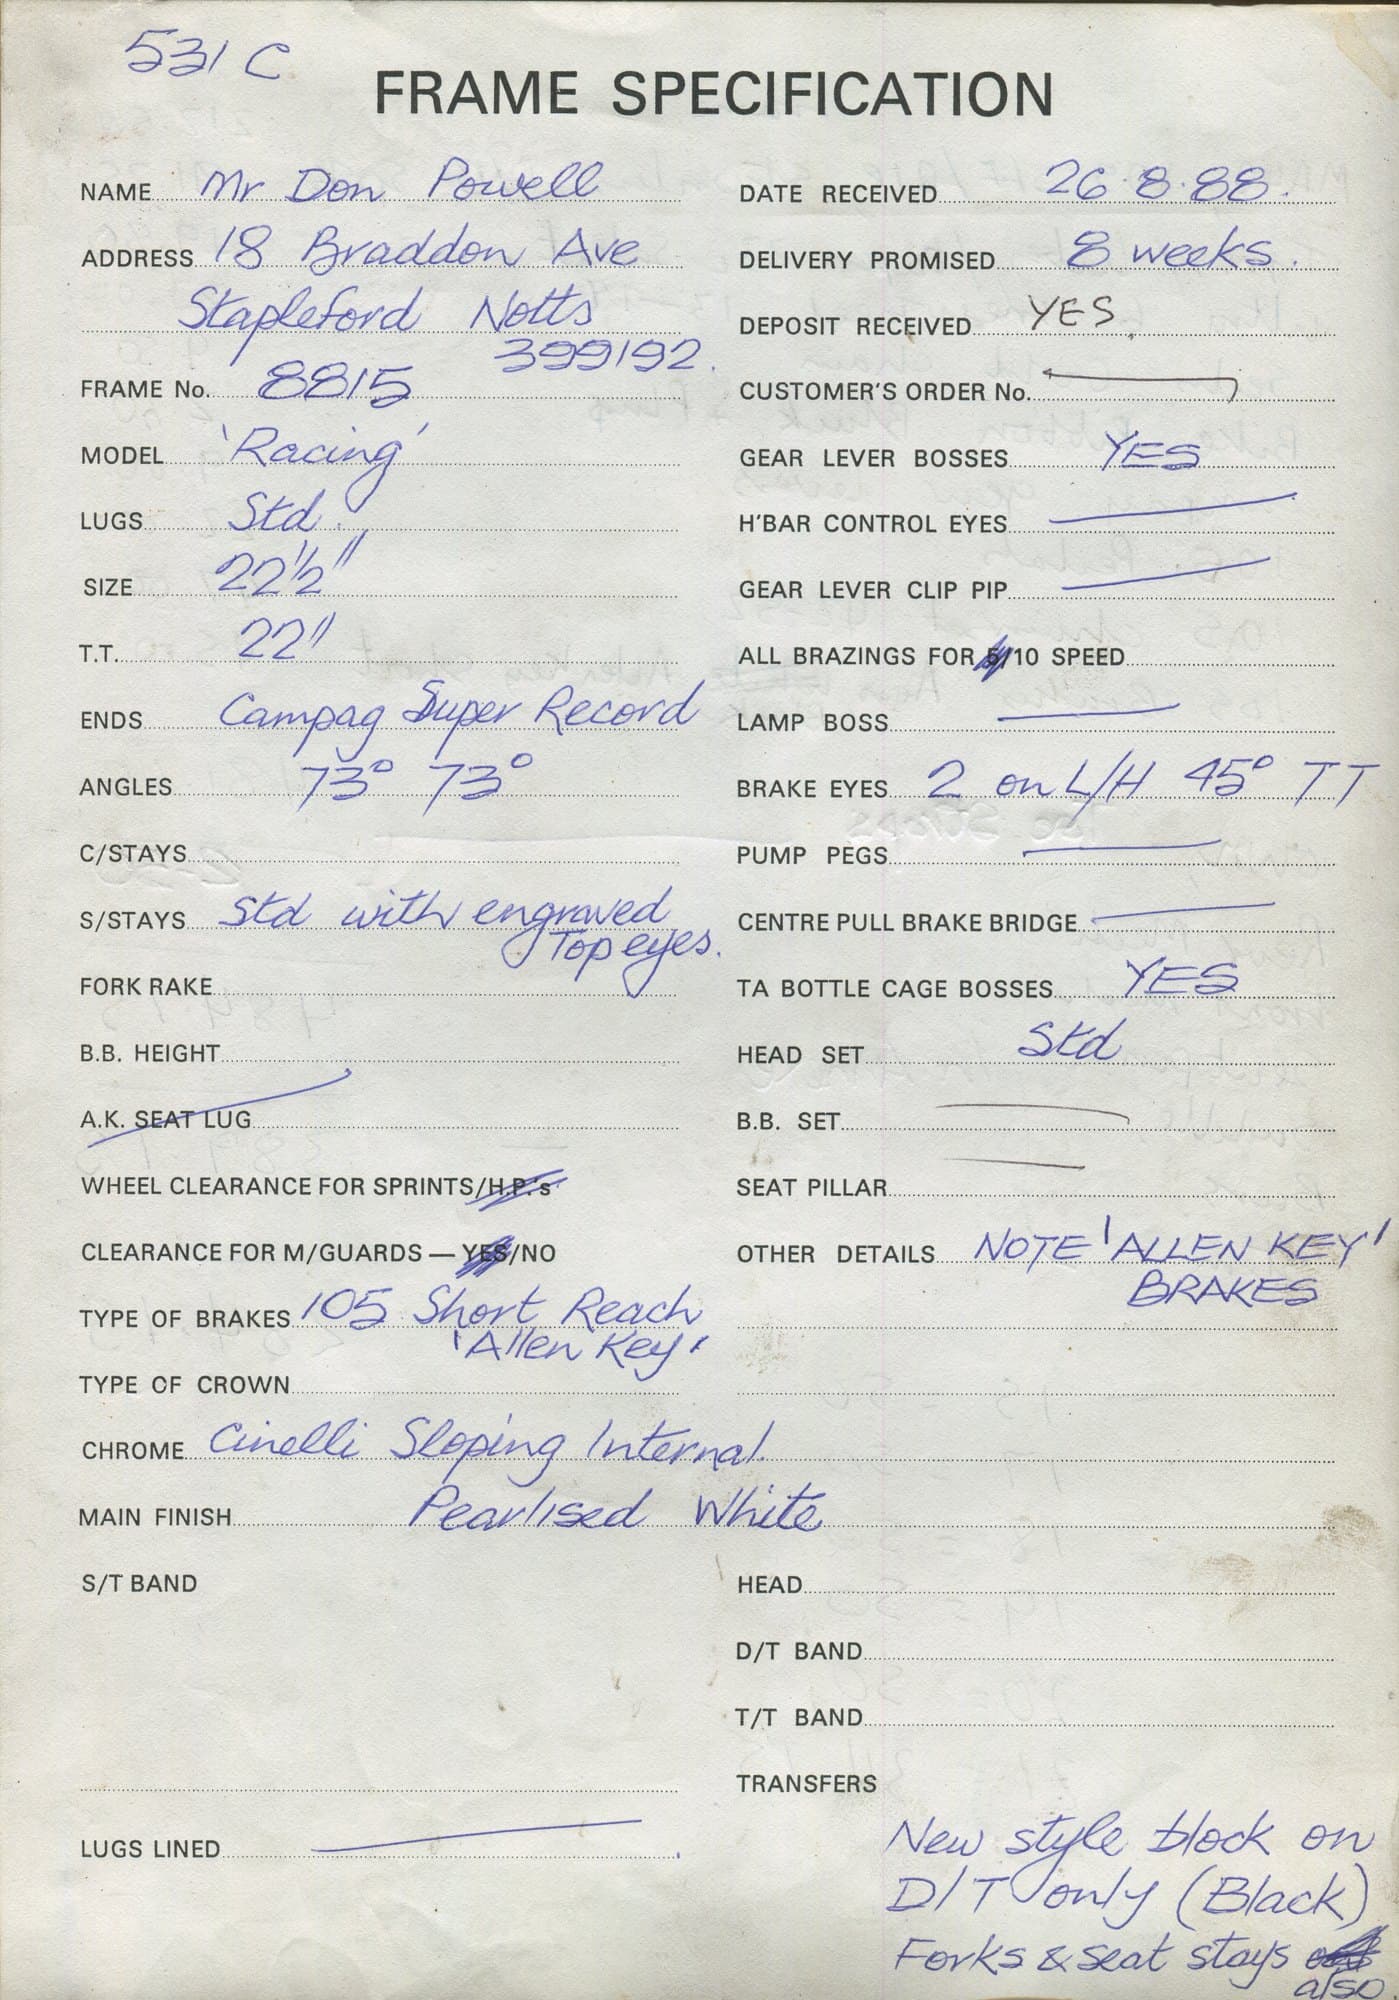 531 C
FRAME SPECIFICATION
NAME Mr Don Powell
ADDRESS 18 Braddon Ave
Stapleford Notts
399192.
FRAME No. 8815
MODEL 'Racing'
LUGS Std.
SIZE 22 1/2"
T.T. 22"
ENDS Campag Super Record
ANGLES 73° 73°
C/STAYS
S/STAYS Std with engraved
Top eyes.
FORK RAKE
B.B. HEIGHT
A.K. SEAT LUG
WHEEL CLEARANCE FOR SPRINTS/H.P.'s
CLEARANCE FOR M/GUARDS — YES/NO
TYPE OF BRAKES 105 Short Reach
'Allen Key'
TYPE OF CROWN
CHROME Cinelli Sloping Internal.
MAIN FINISH Pearlised White
S/T BAND
LUGS LINED
DATE RECEIVED 26.8.88.
DELIVERY PROMISED 8 weeks.
DEPOSIT RECEIVED YES
CUSTOMER'S ORDER No.
GEAR LEVER BOSSES YES
H'BAR CONTROL EYES
GEAR LEVER CLIP PIP
ALL BRAZINGS FOR 5/10 SPEED
LAMP BOSS
BRAKE EYES 2 on L/H 45° TT
PUMP PEGS
CENTRE PULL BRAKE BRIDGE
TA BOTTLE CAGE BOSSES YES
HEAD SET Std
B.B. SET
SEAT PILLAR
OTHER DETAILS NOTE 'ALLEN KEY'
BRAKES
HEAD
D/T BAND
T/T BAND
TRANSFERS
New style block on
D/T only (Black)
Forks & seat stays
also